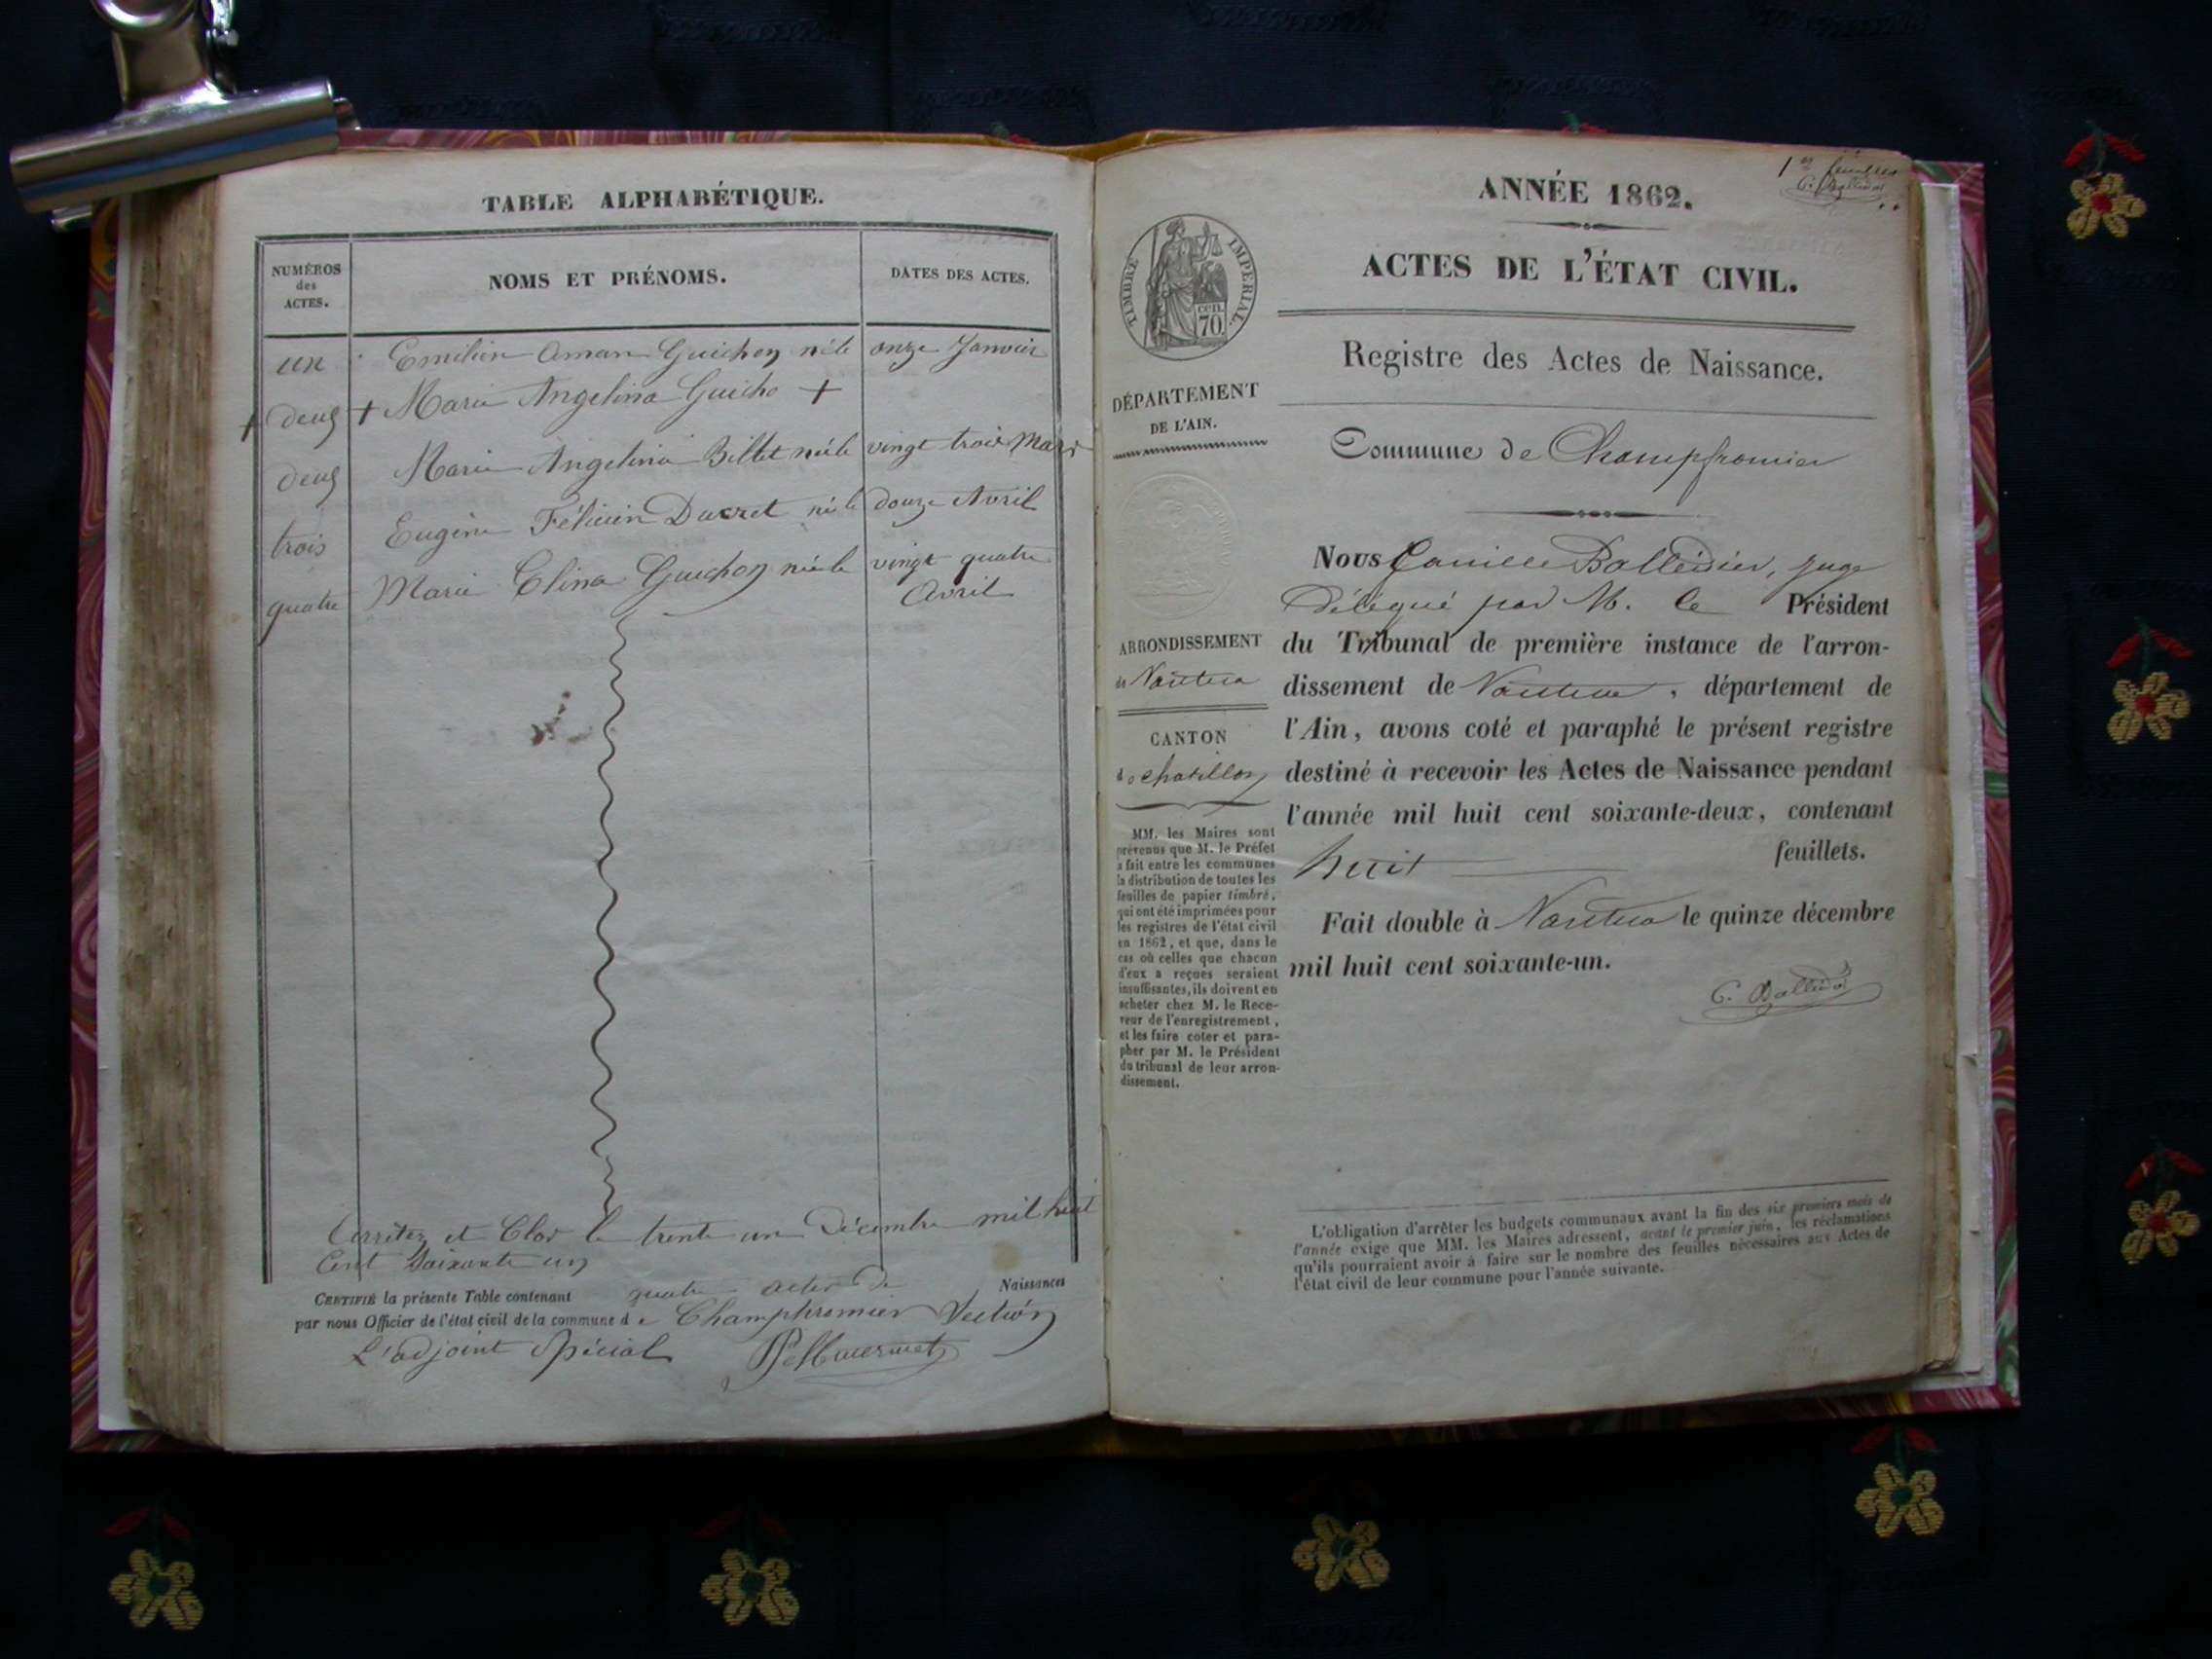 TABLE ALPHABÉTIQUE.
NUMÉROS
des
ACTES.
NOMS ET PRÉNOMS.
DATES DES ACTES.
un Emilien Aman Guichon né le onze Janvier
+ deux + Marie Angelina Guicho +
deux Marie Angelina Billet née le vingt trois Mars
trois Eugène Félicien Ducret né le douze Avril
quatre Marie Elina Guichon née le vingt quatre
Avril
et Clos le trente un Décembre mil huit
Cent Soixante un
CERTIFIÉ la présente Table contenant quatre actes de Naissances
par nous Officier de l'état civil de la commune de Champfromier Section
L'adjoint Spécial
1er feuillet
C. Balleidier
ANNÉE 1862.
ACTES DE L'ÉTAT CIVIL.
Registre des Actes de Naissance.
Commune de Champfromier
TIMBRE IMPÉRIAL.
70 cen.
DÉPARTEMENT
DE L'AIN.
ARRONDISSEMENT
de Nantua
CANTON
de Chatillon
MM. les Maires sont
prévenus que M. le Préfet
a fait entre les communes
la distribution de toutes les
feuilles de papier timbré,
qui ont été imprimées pour
les registres de l'état civil
en 1862, et que, dans le
cas où celles que chacun
d'eux a reçues seraient
insuffisantes, ils doivent en
acheter chez M. le Rece-
veur de l'enregistrement,
et les faire coter et para-
pher par M. le Président
du tribunal de leur arron-
dissement.
Nous Camille Balleidier, juge
délégué par M. le Président
du Tribunal de première instance de l'arron-
dissement de Nantua, département de
l'Ain, avons coté et paraphé le présent registre
destiné à recevoir les Actes de Naissance pendant
l'année mil huit cent soixante-deux, contenant
huit feuillets.
Fait double à Nantua le quinze décembre
mil huit cent soixante-un.
C. Balleidier
L'obligation d'arrêter les budgets communaux avant la fin des six premiers mois de
l'année exige que MM. les Maires adressent, avant le premier juin, les réclamations
qu'ils pourraient avoir à faire sur le nombre des feuilles nécessaires aux Actes de
l'état civil de leur commune pour l'année suivante.